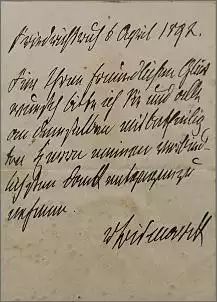 Friedrichsruh 6 April 1892.
Für Ihren freundlichen Glück
wunsch bitte ich Sie und alle
an demselben mitbetheilig
ten Herren meinen verbind-
lichsten Dank entgegenzu
nehmen.
v Bismarck